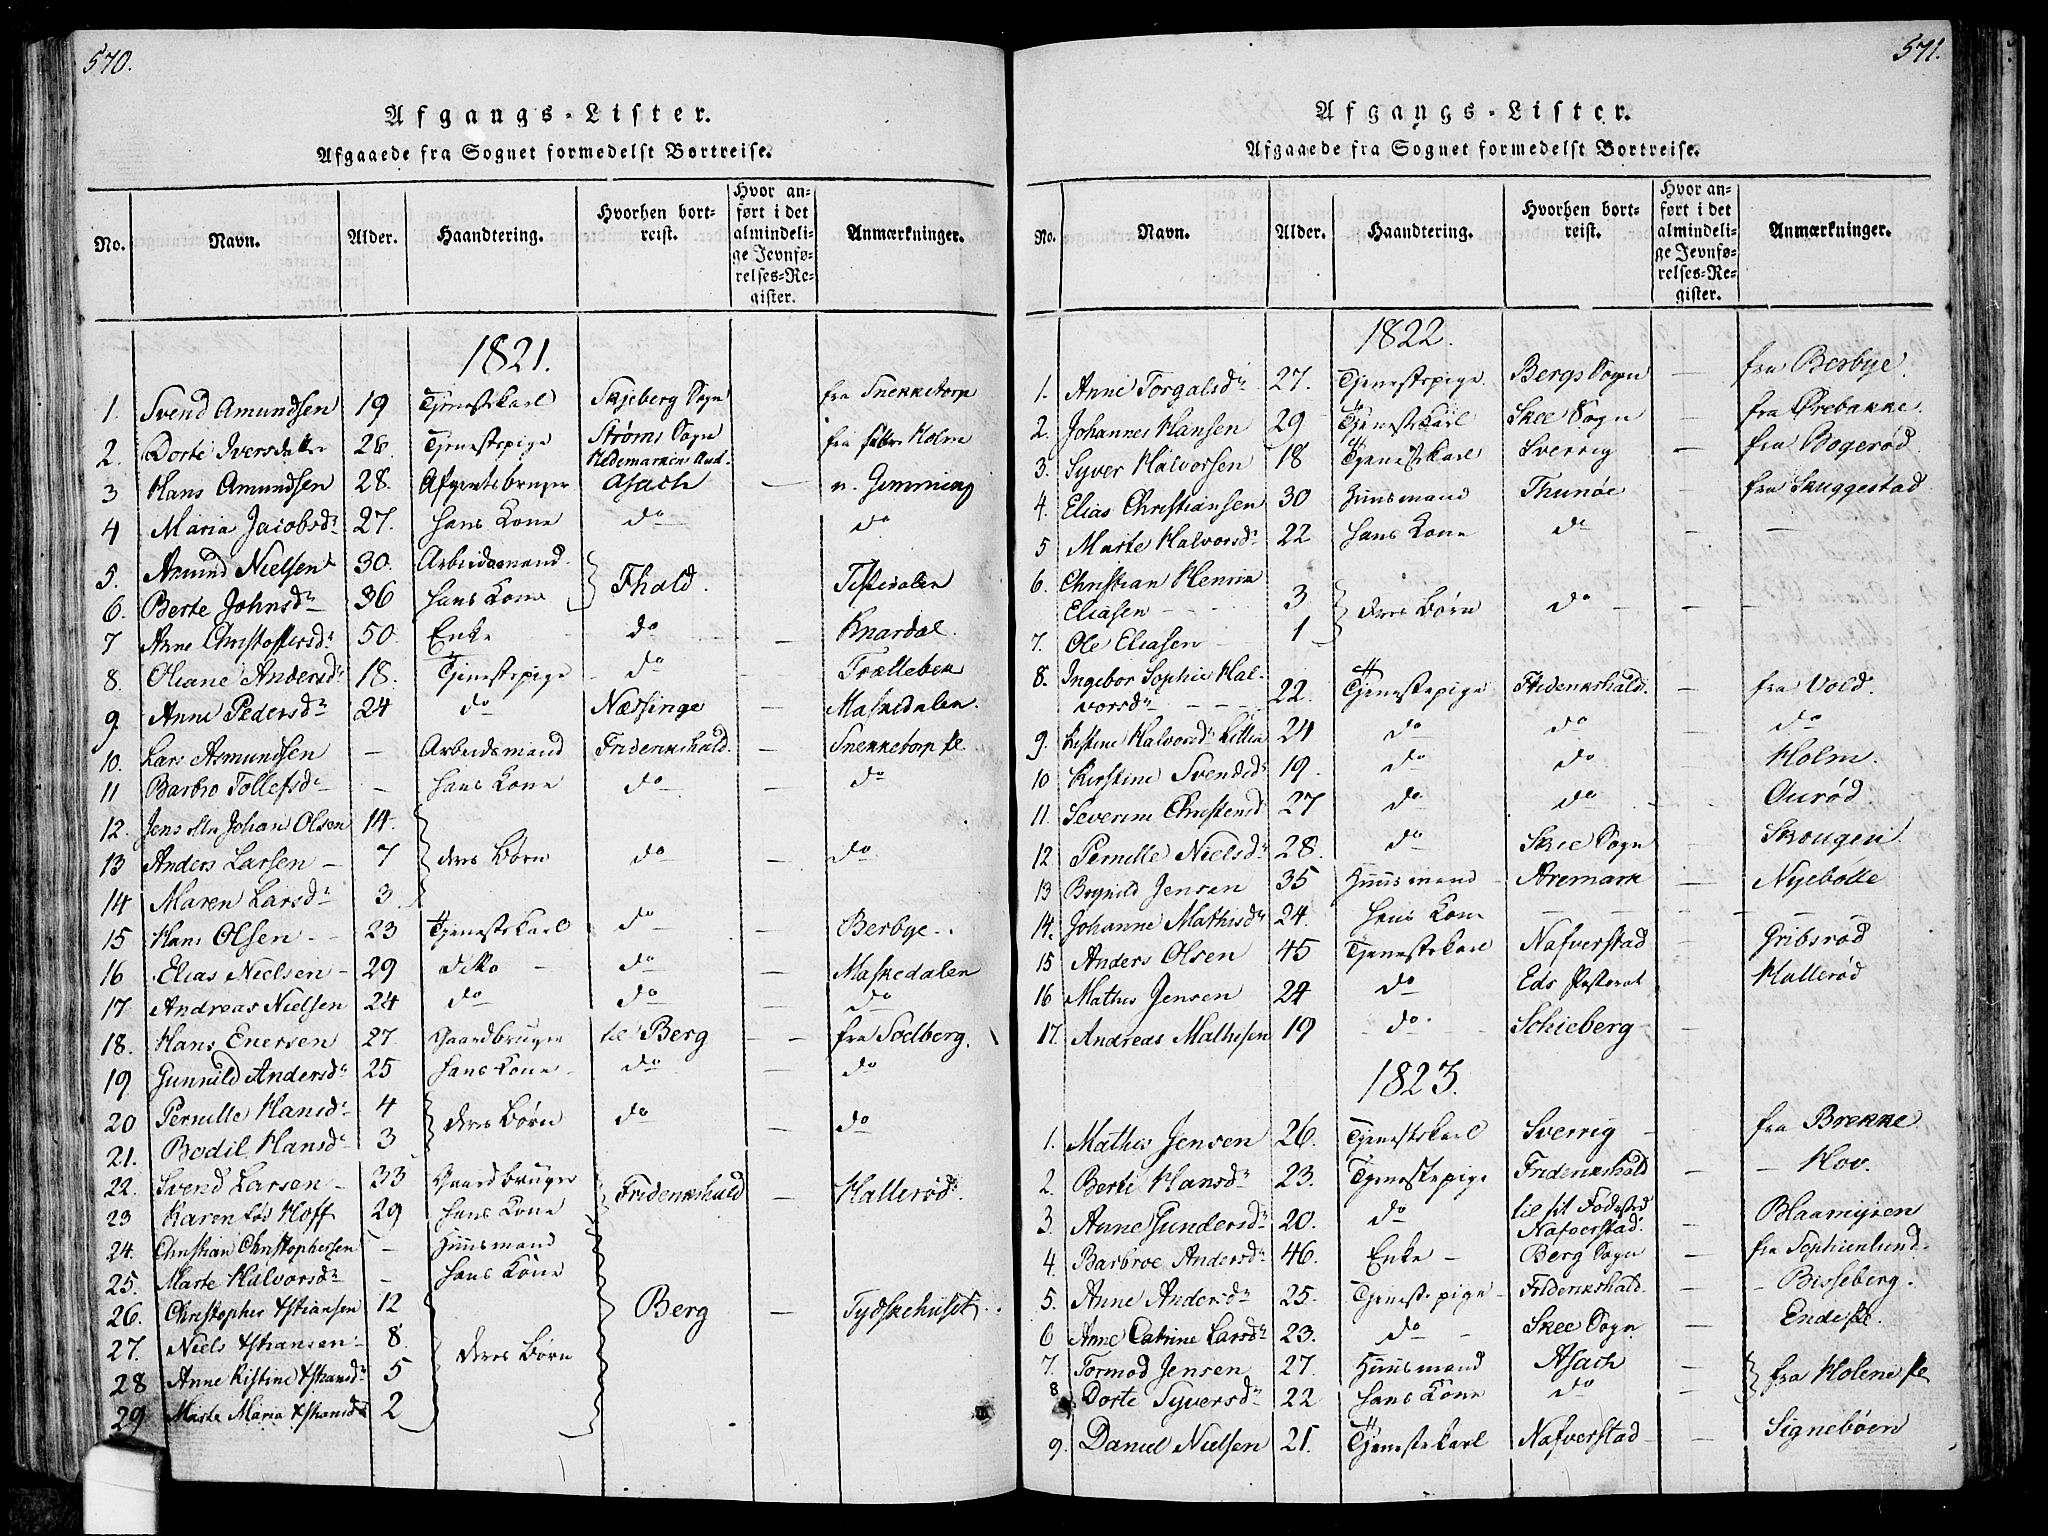 570.
Afgangs-Lister.
Afgaaede fra Sognet formedelst Bortreise.
No. Navn. Alder. Haandtering. Hvorhen bort-reist. Hvor an-ført i det almindeli-ge Jevnfø-relses-Re-gister. Anmærkninger.
1821.
1. Svend Amundsen 19 Tjenestekarl Skjeberg Sogn fra Snekketorp
2. Dorte Iversdatter 26 Tjenestepige Strøms Sogn Hedemarken fra Holm
3 Hans Amundsen 28. Asach — Gimming
4 Maria Jacobsdr 27. hans Kone do do
5. Amund Nielsen 30. Arbeidsmand } Fhald. Tistedalen
6. Berte Johnsdr 36 hans Kone
7 Anne Christoffersdr 50. Enke do — Knardal.
8. Oliane Andersdr 18. Tjenestepige do Trolleben
9 Anne Pedersdr 24 do Næssinge — Maskedalen.
10. Lars Asmundsen — Arbeidsmand Friderikshald. — Snekketorp
11 Barbro Tollefsdr — hans Kone do — do
12. Jens Johan Olsen 14.
13 Anders Larsen — 7 } deres Børn do — do
14 Maren Larsdr 3
15 Hans Olsen 23 Tjenestekarl do — Berbye
16 Elias Nielsen 29 ditto do — Maskedalen
17. Andreas Nielsen 24 do do — do
18. Hans Enersen 27. Gaardbruger til Berg — fra Sodberg.
19 Gunnild Andersdr 25 hans Kone do — do
20 Pernille Hansdr 4 } deres Børn do — do
21. Bodil Hansdr 3
22. Svend Larsen 33 Gaardbruger } Friderikshald — Hallerød.
23 Karen fød Hoff 29 hans Kone
24. Christian Christophersen — Huusmand
25. Marte Halvorsdr — hans Kone
26. Christopher Xstiansen 12 Berg — Tydskehuset
27. Niels Xstiansen 8. } deres Børn
28 Anne Kistine Xstiansdr 5
29 Marte Maria Xstiansdr 2
571.
Afgangs-Lister.
Afgaaede fra Sognet formedelst Bortreise.
No. Navn. Alder. Haandtering. Hvorhen bort-reist. Hvor an-ført i det almindeli-ge Jevnfø-relses-Re-gister. Anmærkninger.
1822.
1. Anne Torgalsdr 27. Tjenestepige. Bergs Sogn — fra Berbye.
2. Johannes Hansen 29 Tjenestekarl Skee Sogn — fra Ørebakke.
3. Syver Halvorsen 18 Tjenestekarl Sverrig — fra Bogerød
4. Elias Christiansen 30 Huusmand Thunøe — fra Skuggestad
5 Marte Halvorsdr 22 hans Kone do — —
6. Christian Henrik
Eliasen 3 } deres Børn do — —
7. Ole Eliasen 1
8. Ingebor Sophie Hal-
vorsdr 22. Tjenestepige Friderikshald. — fra Vold.
9. Kistine Halvorsdr 24 do do — do
10 Kirstine Svendsdr 19. do do — Holm.
11. Severine Christensdr 27 do do — Aurød.
12 Pernille Nielsdr 28. do Skee Sogn — Skougen
13 Bognild Jensen 35 Huusmand Aremark — Nyebølle
14. Johanne Mathisdr 24. hans Kone — — —
15 Anders Olsen 45 Tjenestekarl Nafverstad Gribsrød
16 Mathis Jensen 24 do Eds Pastorat — Hallerød
17. Andreas Mathisen 19 do Schieberg —
1823.
1. Mathis Jensen 26. Tjenestekarl Sverrig — fra Brekke
2. Berte Hansdr 23. Tjenestepige Friderikshald — Hov.
3. Anne Gundersdr 20. do til sit Fødested Nafverstad. — Blaamyren
4. Barbroe Andersdr 46. Enke — Berg Sogn — fra Sophienlund.
5. Anne Andersdr 25. Tjenestepige Friderikshald. — Bisseberg.
6 Anne Catrine Larsdr 23. do Skee Sogn — Ende
7. Tormod Jensen 27. Huusmand Asach — } fra Holene
8 Dorte Syversdr 22 hans Kone do —
9. Daniel Nielsen 21. Tjenestekarl Nafverstad — Signebøen